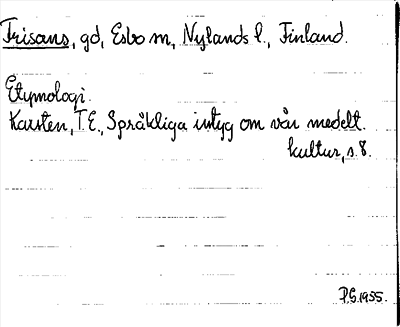 Frisans, gd, Esbo sn, Nylands l., Finland.
Etymologi.
Karsten, T.E., Språkliga intyg om vår medelt.
kultur, s. 8.
P.G. 1955.